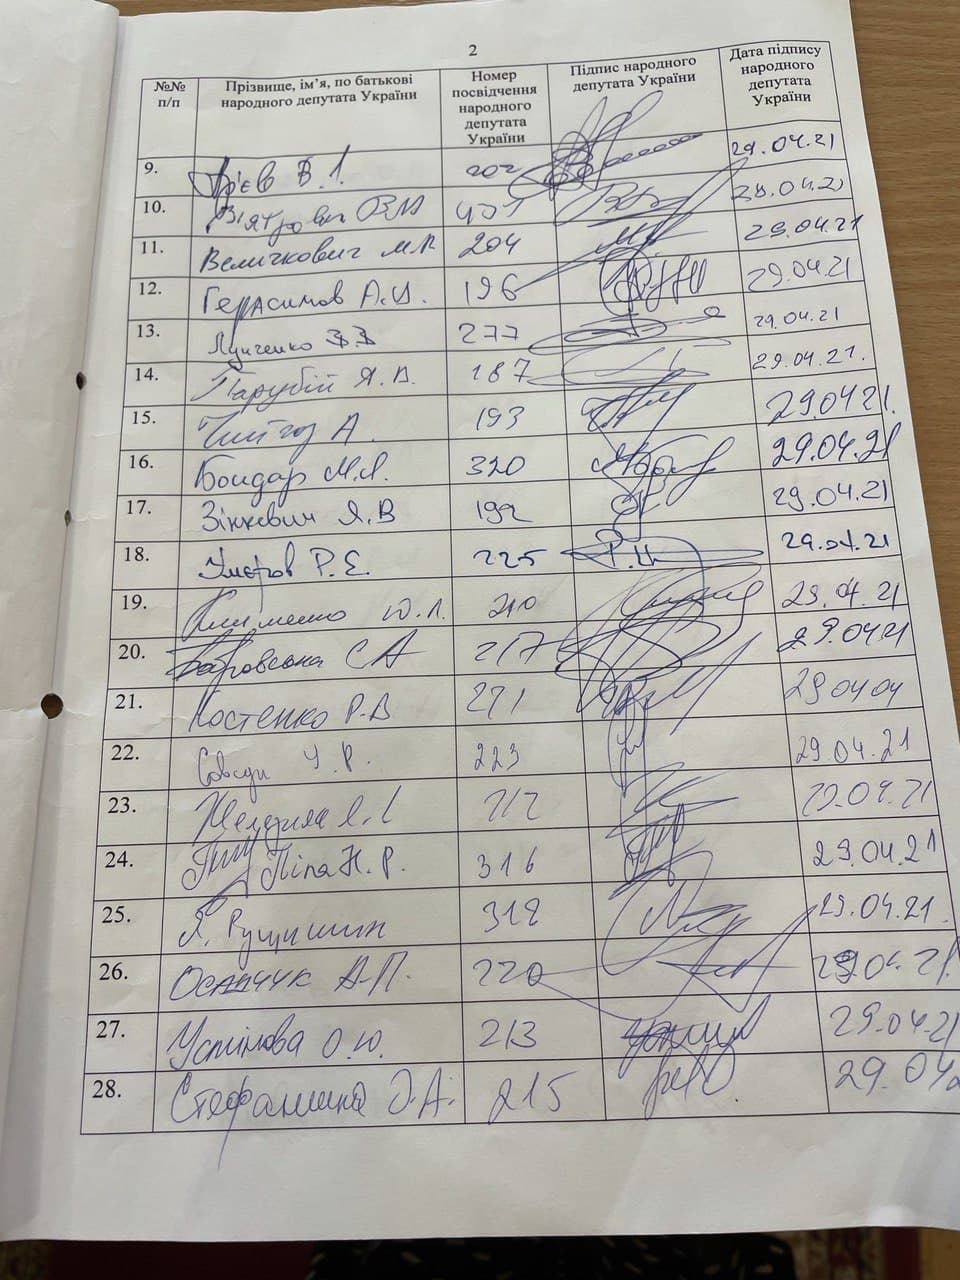 2
№№ п/п Прізвище, ім’я, по батькові народного депутата України Номер посвідчення народного депутата України Підпис народного депутата України Дата підпису народного депутата України
9. Ар'єв В.І. 202 29.04.21
10. В'ятрович В.М 29.04.21
11. Величкович М.Р 204 29.04.21
12. Герасимов А.В. 196 29.04.21
13. Лунченко В.В 277 29.04.21
14. Парубій А.В. 187 29.04.21.
15. Чийгоз А. 193 29.0421.
16. Бондар М.Л. 320 29.04.21
17. Зінкевич Я.В 192 29.04.21
18. Р.Е. 225 29.04.21
19. Клименко Ю.Л. 210 29.04.21
20. С А 217 29.0421
21. Костенко Р.В 271 290404
22. 223 29.04.21
23. 212 29.04.21
24. Піпа Н.Р. 316 29.04.21
25. Я. Рущишин 318 29.04.21.
26. Осадчук А.П. 220 29.04.21.
27. Устінова О.Ю. 213 29.04.21
28. Стефанишина О.А. 215 29.04